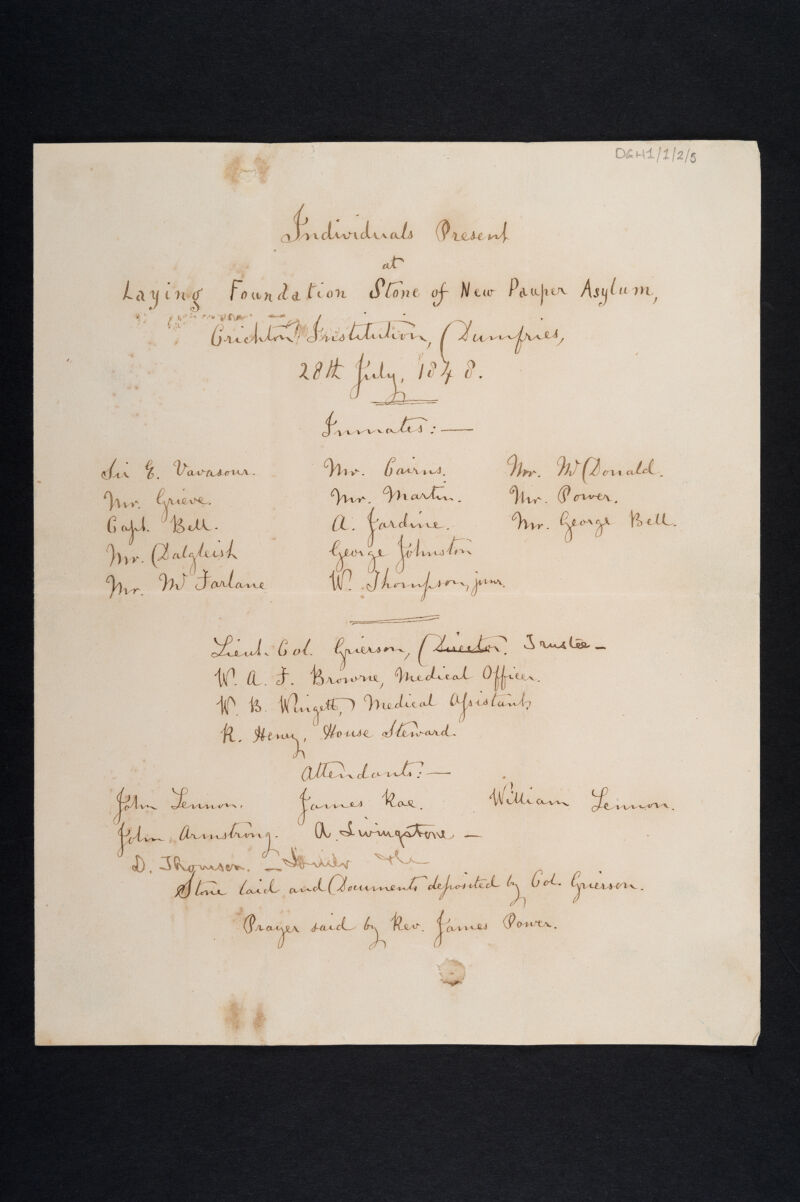 DGH1/1/2/5
Individuals Present
at
Laying Foundation Stone of New Pauper Asylum,
Crichton Institution, Dumfries,
28th July, 1848.
Inmates:—
Sir E. Vavasour. Mr. Cairns. Mr. McDonald.
Mr. Grieve. Mr. Martin. Mr. Power.
Capt. Bell. A. Jardine. Mr. George Bell.
Mr. Dalgleish George Johnston
Mr. McFarlane W. Thompson, junr.
Lieut. Col. Grierson, Director. Trustee—
W. A. F. Browne, Medical Officer.
W. B. Wingett, Medical Assistant,
R. Henry, House Steward.
Attendants:—
John Lennon. James Rae. William Lennon.
John Armstrong. A. Livingstone—
D. Thomson.—
Stone laid and Documents deposited by Col. Grierson.
Prayer said by Rev. James Power.